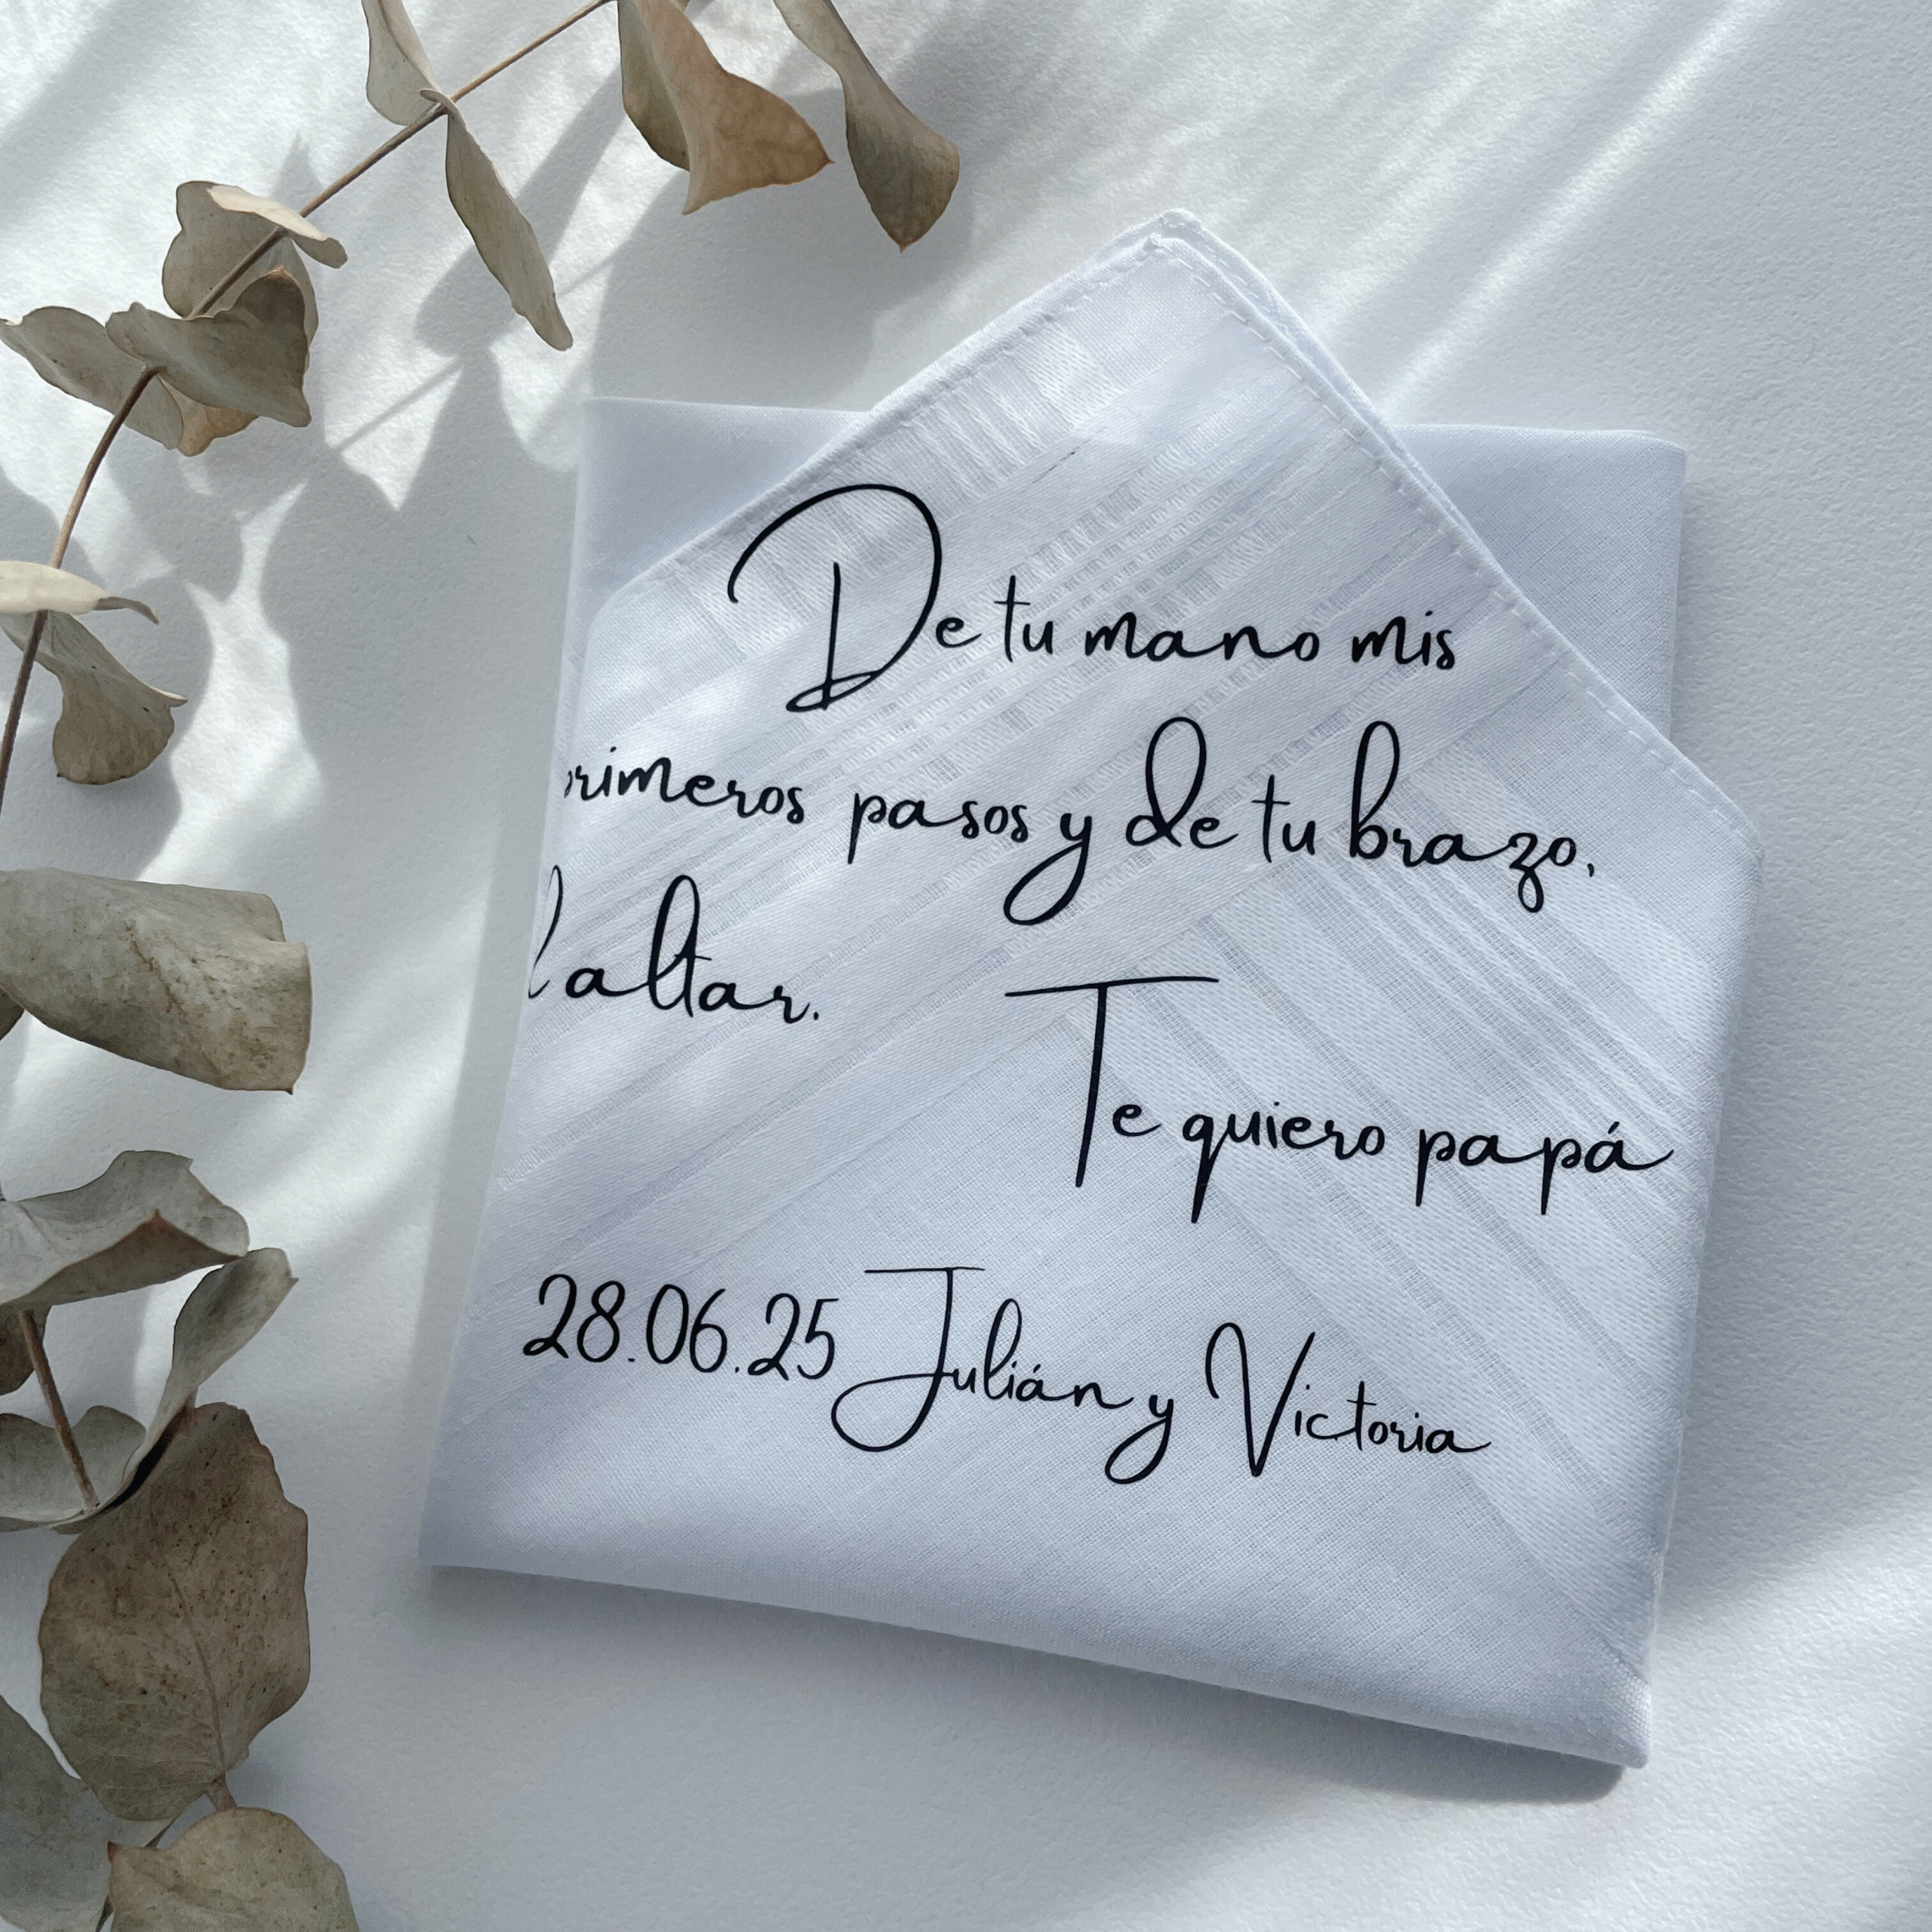 De tu mano mis
primeros pasos y de tu brazo,
al altar.
Te quiero papá
28.06.25 Julián y Victoria